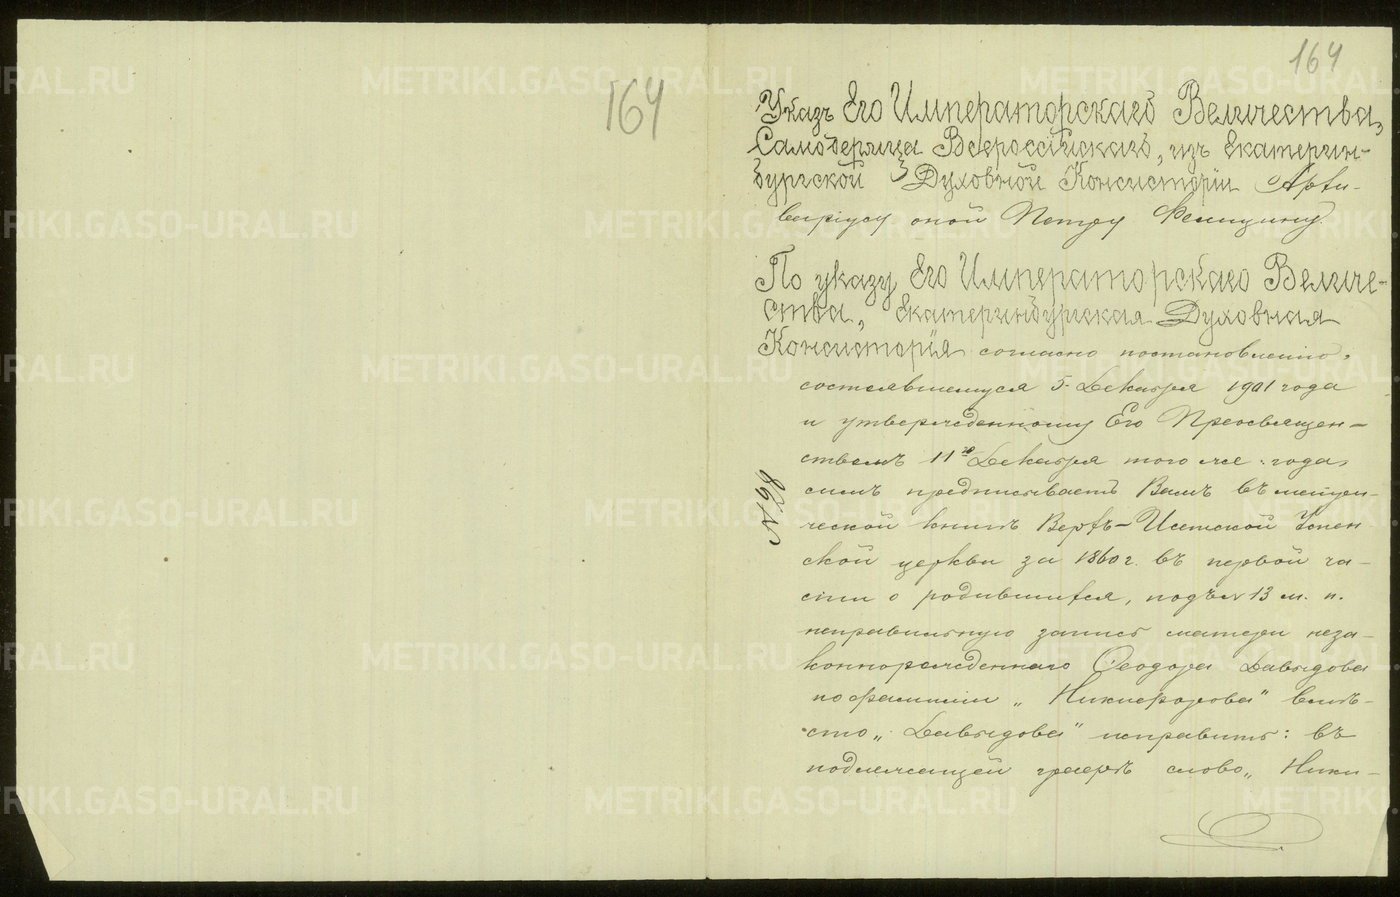 164
164
Указъ Его Императорскаго Величества,
Самодержца Всероссійскаго, изъ Екатерин-
бургской Духовной Консисторіи Архи-
варіусу оной Петру
По указу Его Императорскаго Величе-
ства, Екатеринбургская Духовная
Консисторія согласно постановленію,
состоявшемуся 5 Декабря 1901 года
и утвержденному Его Преосвящен-
ствомъ 11го Декабря того же года,
симъ предписываетъ Вамъ въ метри-
ческой книгѣ Верхъ-Исетской Успен
ской церкви за 1860 г. въ первой ча-
сти о родившихся, подъ № 13 м. п.
неправильную запись матери неза-
коннорожденнаго Ѳеодора Давыдова
по фамиліи „Никифорова" вмѣ-
сто „Давыдова" исправить: въ
подлежащей графѣ слово „Ники-
№ 28
METRIKI.GASO-URAL.RU